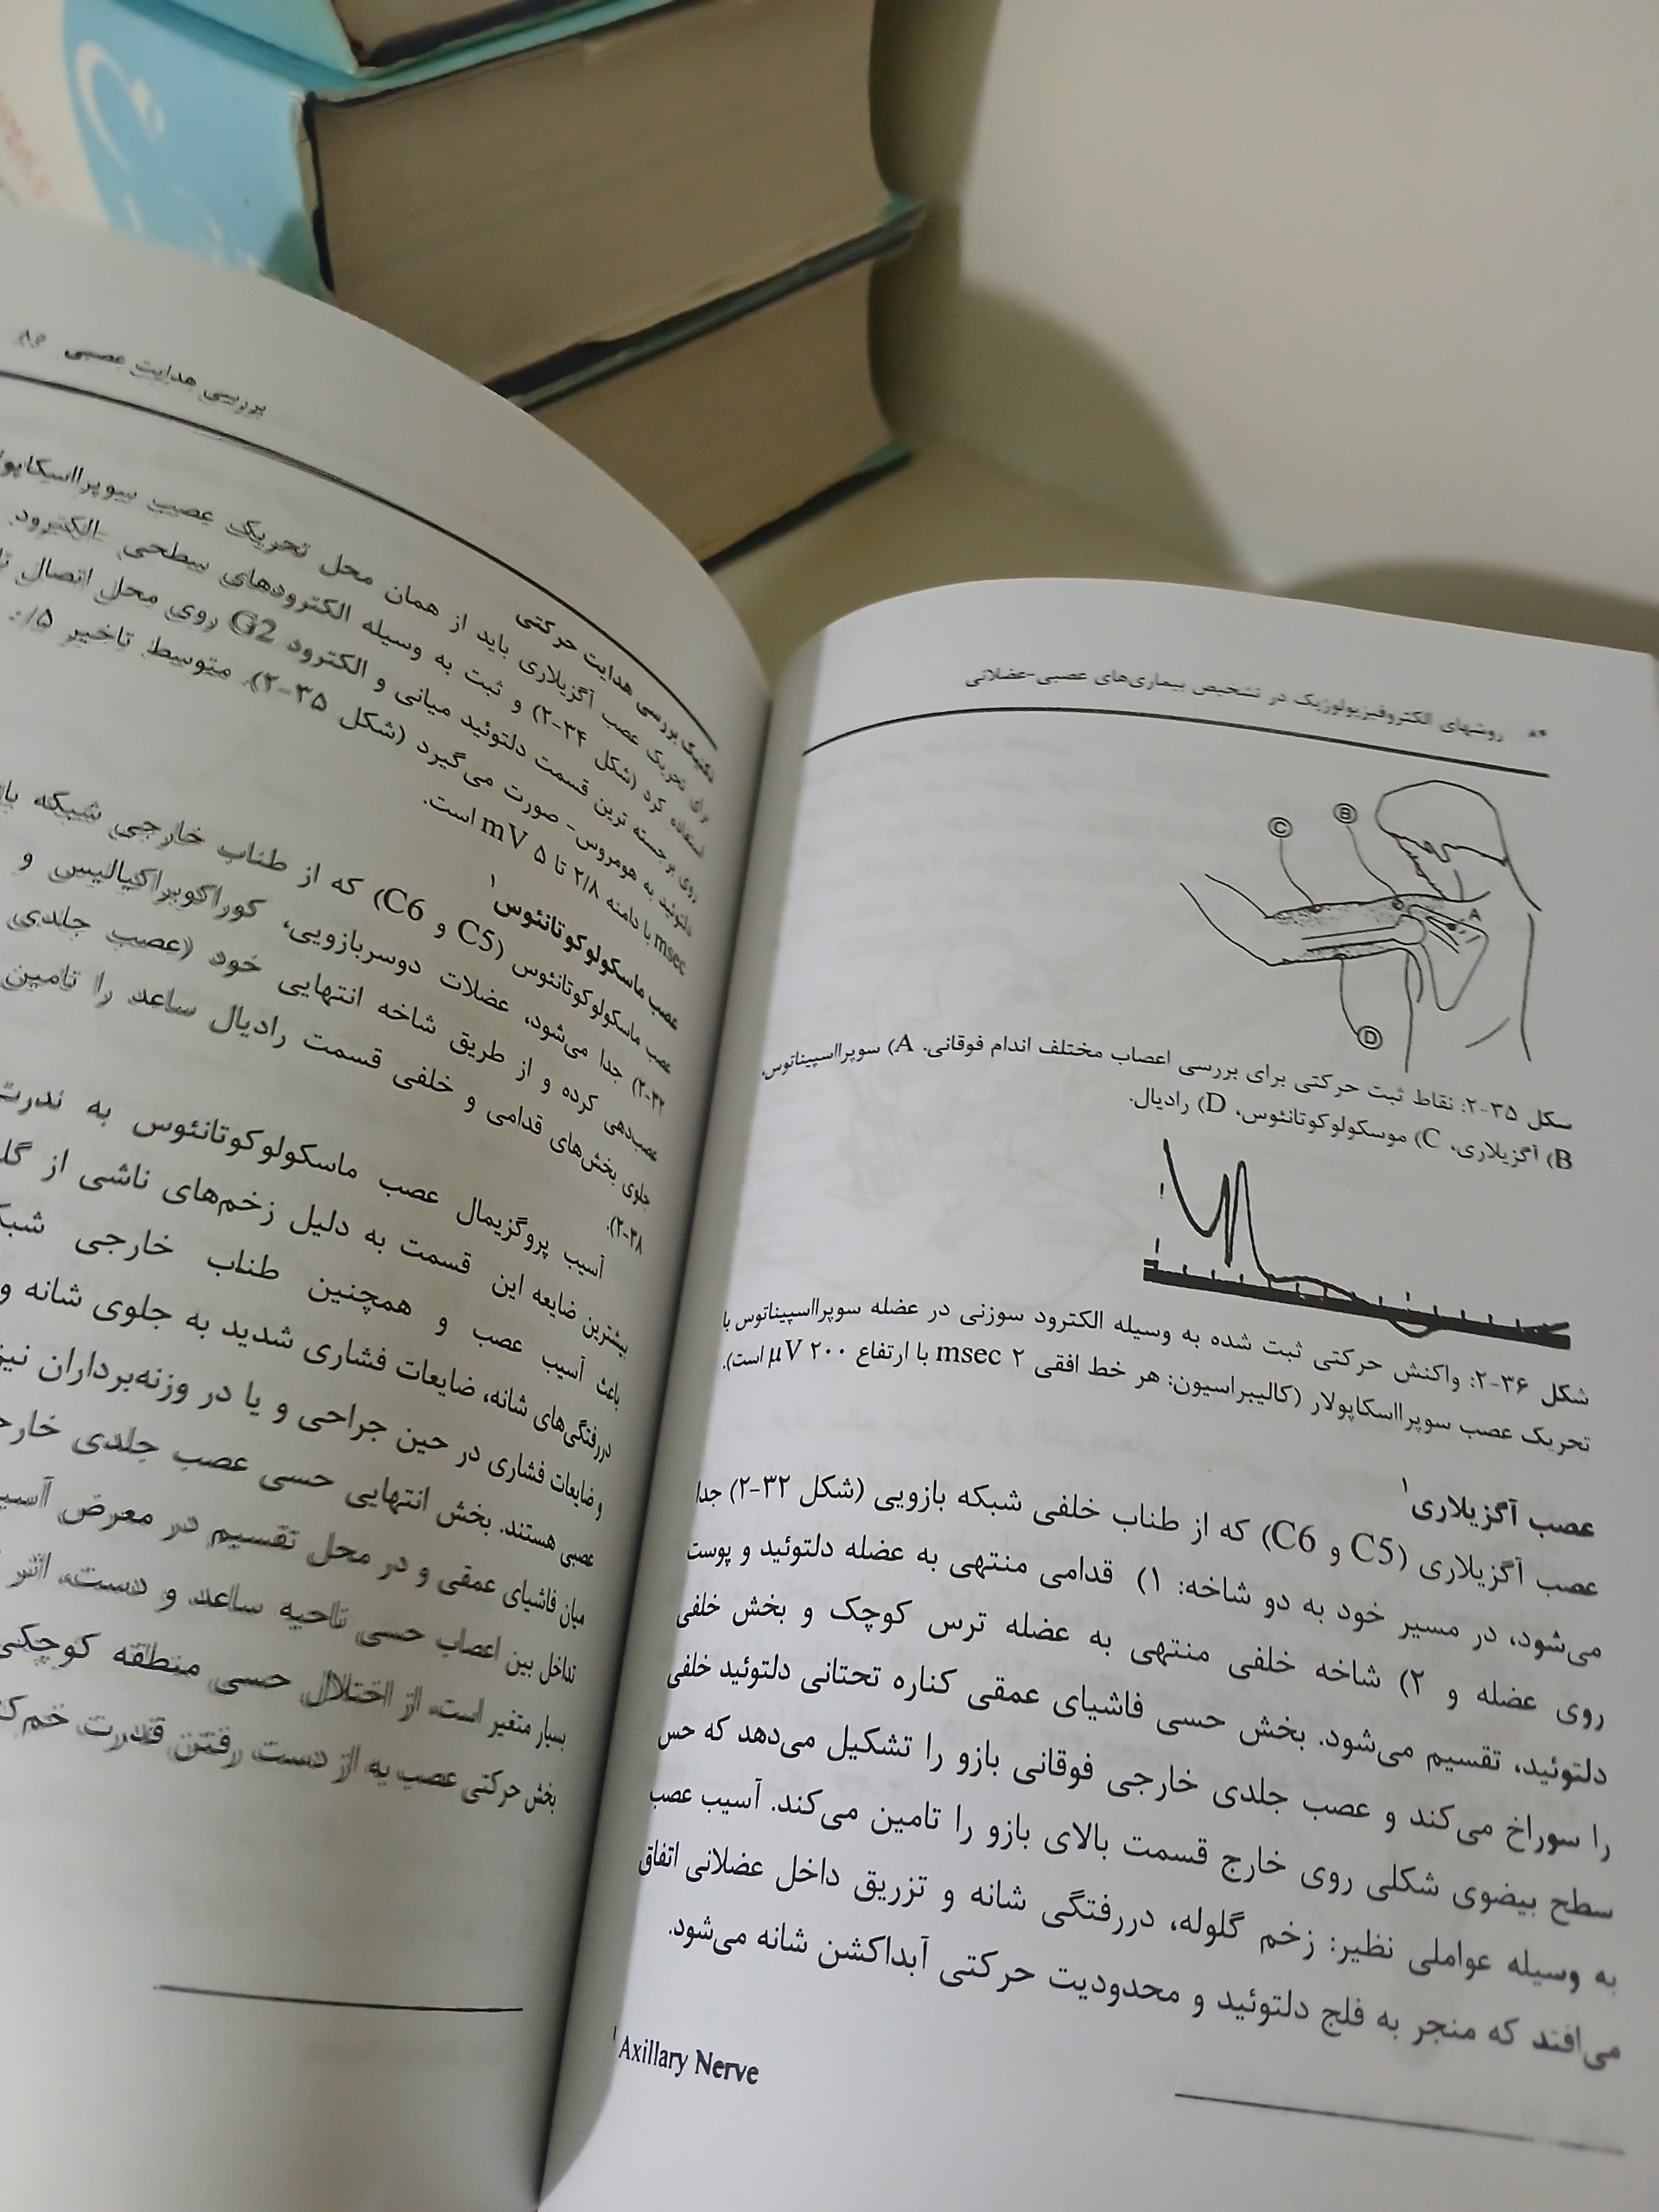 ۸۴ روشهای الکتروفیزیولوژیک در تشخیص بیماری‌های عصبی-عضلانی
B
C
A
D
شکل ۳۵-۲: نقاط ثبت حرکتی برای بررسی اعصاب مختلف اندام فوقانی. A) سوپرااسپیناتوس،
B) آگزیلاری، C) موسکولوکوتانئوس، D) رادیال.
شکل ۳۶-۲: واکنش حرکتی ثبت شده به وسیله الکترود سوزنی در عضله سوپرااسپیناتوس با
تحریک عصب سوپرااسکاپولار (کالیبراسیون: هر خط افقی ۲ msec با ارتفاع ۲۰۰ μV است).
عصب آگزیلاری۱
عصب آگزیلاری (C5 و C6) که از طناب خلفی شبکه بازویی (شکل ۳۲-۲) جدا
می‌شود، در مسیر خود به دو شاخه: ۱) قدامی منتهی به عضله دلتوئید و پوست
روی عضله و ۲) شاخه خلفی منتهی به عضله ترس کوچک و بخش خلفی
دلتوئید، تقسیم می‌شود. بخش حسی فاشیای عمقی کناره تحتانی دلتوئید خلفی
را سوراخ می‌کند و عصب جلدی خارجی فوقانی بازو را تشکیل می‌دهد که حس
سطح بیضوی شکلی روی خارج قسمت بالای بازو را تامین می‌کند. آسیب عصب
به وسیله عواملی نظیر: زخم گلوله، دررفتگی شانه و تزریق داخل عضلانی اتفاق
می‌افتد که منجر به فلج دلتوئید و محدودیت حرکتی آبداکشن شانه می‌شود.
۱ Axillary Nerve
بررسی هدایت عصبی
تکنیک بررسی هدایت حرکتی
برای تحریک عصب آگزیلاری باید از همان محل تحریک عصب
استفاده کرد (شکل ۳۴-۲) و ثبت به وسیله الکترودهای سطحی -الکترود
روی برجسته ترین قسمت دلتوئید میانی و الکترود G2 روی محل اتصال
دلتوئید به هومروس- صورت می‌گیرد (شکل ۳۵-۲). متوسط تاخیر
msec با دامنه ۲/۸ تا ۵ mV است.
عصب ماسکولوکوتانئوس۱
عصب ماسکولوکوتانئوس (C5 و C6) که از طناب خارجی شبکه
۳۲-۲) جدا می‌شود، عضلات دوسربازویی، کوراکوبراکیالیس و
عصبدهی کرده و از طریق شاخه انتهایی خود (عصب جلدی
جلوی بخش‌های قدامی و خلفی قسمت رادیال ساعد را تامین
۳۸-۲).
آسیب پروگزیمال عصب ماسکولوکوتانئوس به ندرت
بیشترین ضایعه این قسمت به دلیل زخم‌های ناشی از
باعث آسیب عصب و همچنین طناب خارجی
دررفتگی‌های شانه، ضایعات فشاری شدید به جلوی شانه و
و ضایعات فشاری در حین جراحی و یا در وزنه‌برداران نیز
عصبی هستند. بخش انتهایی حسی عصب جلدی
میان فاشیای عمقی و در محل تقسیم در معرض
تداخل بین اعصاب حسی ناحیه ساعد و دست، اثر
بسیار متغیر است، از اختلال حسی منطقه کوچکی
بخش حرکتی عصب به از دست رفتن قدرت